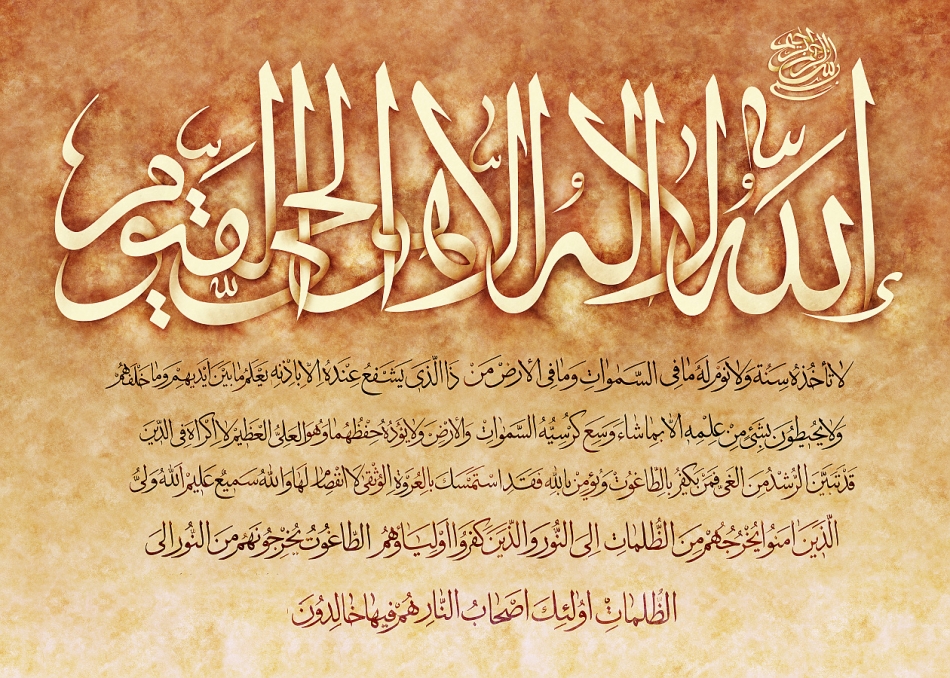 بسم الله الرحمن الرحيم
الله لا إله إلا هو الحي القيوم
لا تأخذه سنة ولا نوم له ما في السموات وما في الأرض من ذا الذي يشفع عنده إلا باذنه يعلم ما بين أيديهم وما خلفهم
ولا يحيطون بشيء من علمه إلا بما شاء وسع كرسيه السموات والأرض ولا يؤده حفظهما وهو العلي العظيم لا اكراه في الدين
قد تبين الرشد من الغي فمن يكفر بالطاغوت ويؤمن بالله فقد استمسك بالعروة الوثقى لا انفصام لها والله سميع عليم الله ولي
الذين امنوا يخرجهم من الظلمات الى النور والذين كفروا اولياؤهم الطاغوت يخرجونهم من النور الى
الظلمات اولئك اصحاب النار هم فيها خالدون